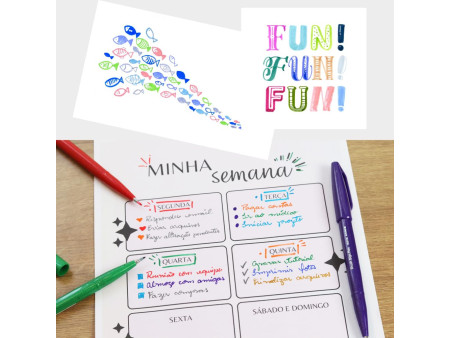 FUN!
FUN!
FUN!
MINHA semana
SEGUNDA
Responder email
Enviar arquivos
Fazer alteração pendentes
TERÇA
Pagar contas
Ir ao médico
Iniciar projeto
QUARTA
Reunião com equipe
Almoço com amigas
Fazer compras
QUINTA
Gravar tutorial
Imprimir fotos
Finalizar arquivos
SEXTA
SÁBADO E DOMINGO